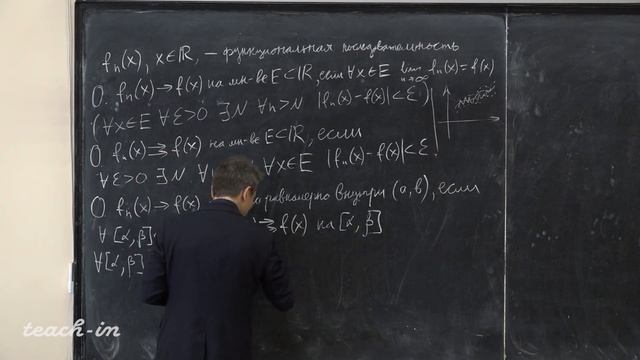 fₙ(x), x∈ℝ, — функциональная последовательность
O. fₙ(x)→f(x) на мн-ве E⊂ℝ, если ∀x∈E lim n→∞ fₙ(x)=f(x)
(∀x∈E ∀ε>0 ∃N ∀n>N |fₙ(x)-f(x)|<ε)
O fₙ(x)⇉f(x) на мн-ве E⊂ℝ, если
∀ε>0 ∃N ∀x∈E |fₙ(x)-f(x)|<ε.
O fₙ(x)→f(x) равномерно внутри (a,b), если
∀[α,β] ⇉f(x) на [α,β]
∀[α,β]
teach-in